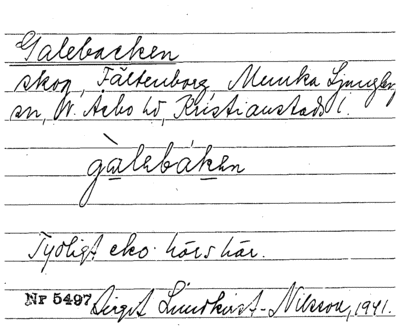 Galebacken
skog, Fältenborg, Munka Ljungby
sn, N. Åsbo hd, Kristianstads l.
gàlebáken
Tydligt eko höres här.
Nr 5497 Birgit Lundkvist-Nilsson, 1941.